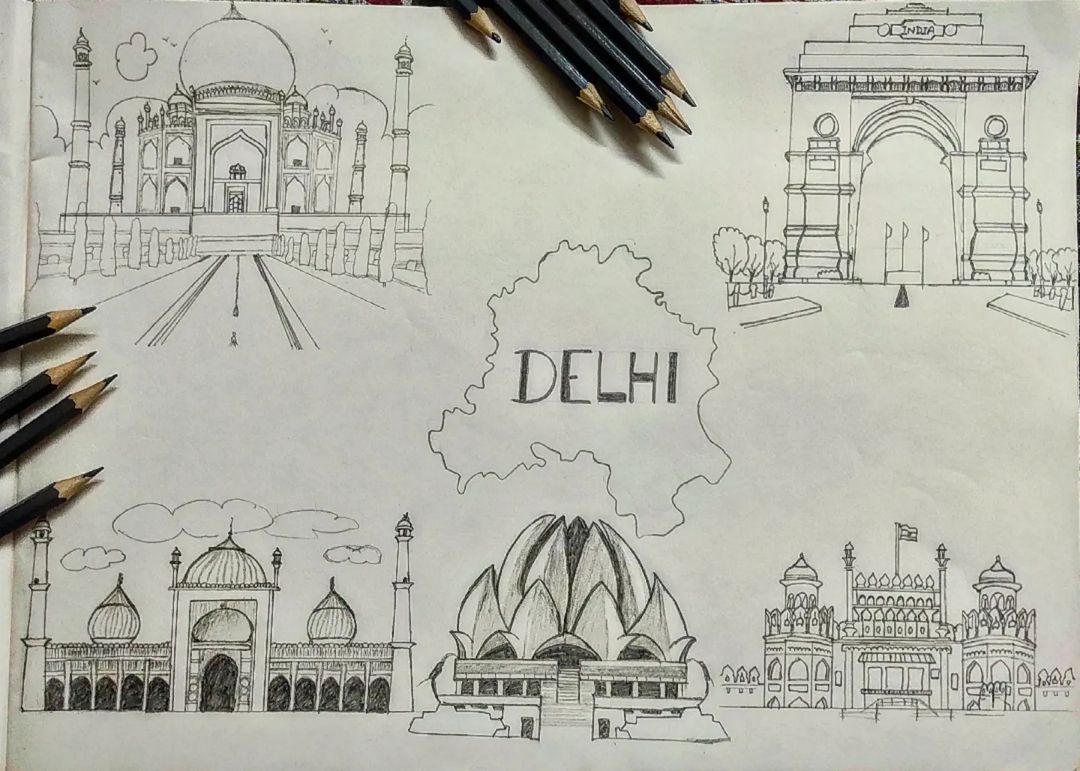 INDIA
DELHI